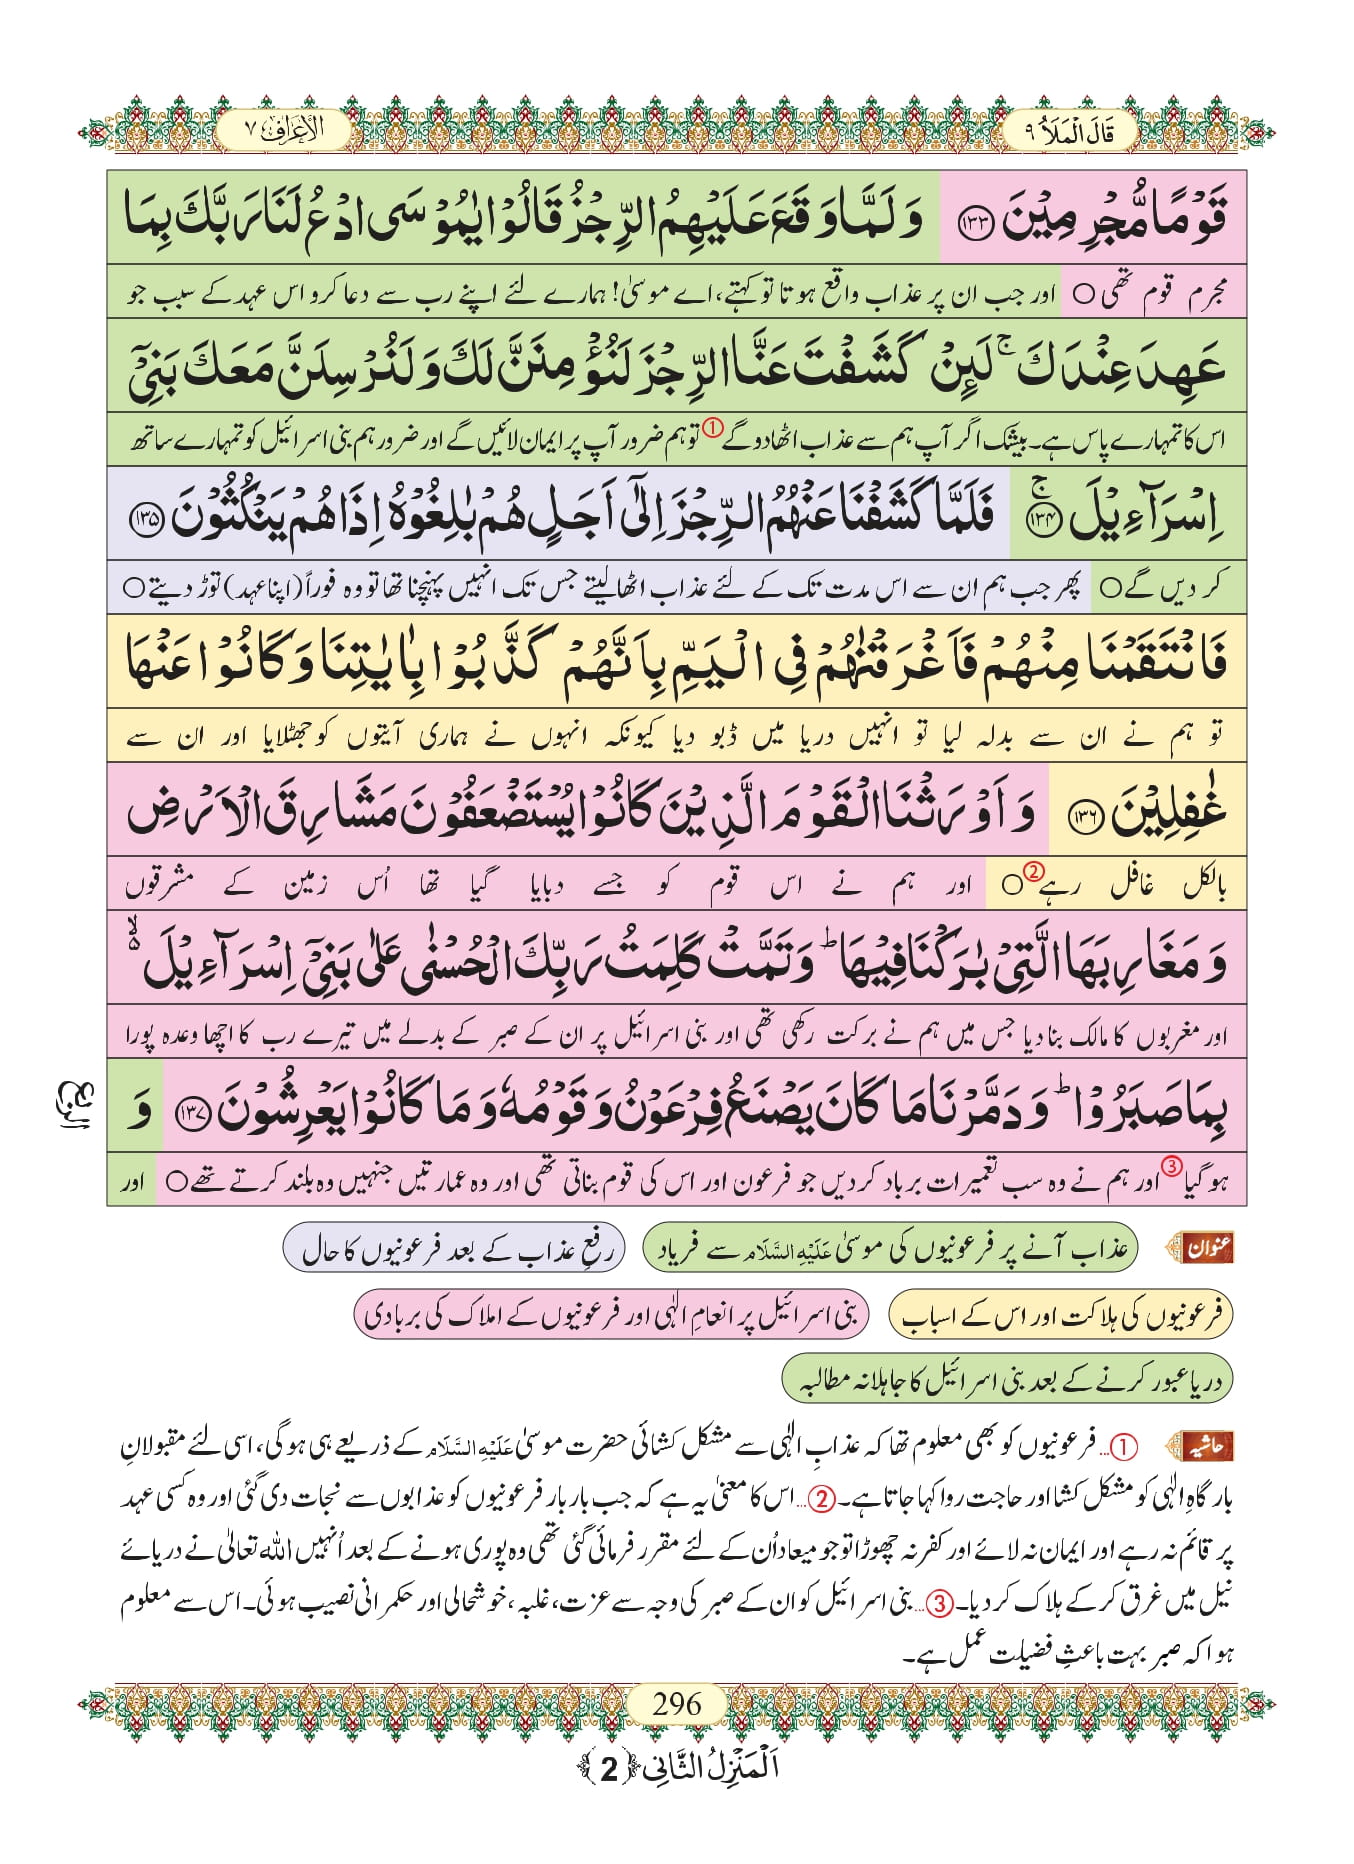 قَالَ الْمَلَاُ ۹
الْاَعْرَاف ۷
قَوْمًا مُّجْرِمِیْنَ ﴿۱۳۳﴾ وَلَمَّا وَقَعَ عَلَیْهِمُ الرِّجْزُ قَالُوْا یٰمُوْسَى ادْعُ لَنَا رَبَّكَ بِمَا
مجرم قوم تھی ○ اور جب ان پر عذاب واقع ہوتا تو کہتے، اے موسیٰ! ہمارے لئے اپنے رب سے دعا کرو اس عہد کے سبب جو
عَهِدَ عِنْدَكَ ۚ لَىِٕنْ كَشَفْتَ عَنَّا الرِّجْزَ لَنُؤْمِنَنَّ لَكَ وَلَنُرْسِلَنَّ مَعَكَ بَنِیْۤ
اس کا تمہارے پاس ہے۔ بیشک اگر آپ ہم سے عذاب اٹھا دو گے ① تو ہم ضرور آپ پر ایمان لائیں گے اور ضرور ہم بنی اسرائیل کو تمہارے ساتھ
اِسْرَآءِیْلَ ۚ﴿۱۳۴﴾ فَلَمَّا كَشَفْنَا عَنْهُمُ الرِّجْزَ اِلٰۤى اَجَلٍ هُمْ بٰلِغُوْهُ اِذَا هُمْ یَنْكُثُوْنَ ﴿۱۳۵﴾
کر دیں گے ○ پھر جب ہم ان سے اس مدت تک کے لئے عذاب اٹھا لیتے جس تک انہیں پہنچنا تھا تو وہ فوراً (اپنا عہد) توڑ دیتے ○
فَانْتَقَمْنَا مِنْهُمْ فَاَغْرَقْنٰهُمْ فِی الْیَمِّ بِاَنَّهُمْ كَذَّبُوْا بِاٰیٰتِنَا وَكَانُوْا عَنْهَا
تو ہم نے ان سے بدلہ لیا تو انہیں دریا میں ڈبو دیا کیونکہ انہوں نے ہماری آیتوں کو جھٹلایا اور ان سے
غٰفِلِیْنَ ﴿۱۳۶﴾ وَاَوْرَثْنَا الْقَوْمَ الَّذِیْنَ كَانُوْا یُسْتَضْعَفُوْنَ مَشَارِقَ الْاَرْضِ
بالکل غافل رہے ② ○ اور ہم نے اس قوم کو جسے دبایا گیا تھا اُس زمین کے مشرقوں
وَمَغَارِبَهَا الَّتِیْ بٰرَكْنَا فِیْهَا ؕ وَتَمَّتْ كَلِمَتُ رَبِّكَ الْحُسْنٰى عَلٰى بَنِیْۤ اِسْرَآءِیْلَ ۙ۬
اور مغربوں کا مالک بنا دیا جس میں ہم نے برکت رکھی تھی اور بنی اسرائیل پر ان کے صبر کے بدلے میں تیرے رب کا اچھا وعدہ پورا
بِمَا صَبَرُوْا ؕ وَدَمَّرْنَا مَا كَانَ یَصْنَعُ فِرْعَوْنُ وَقَوْمُهٗ وَمَا كَانُوْا یَعْرِشُوْنَ ﴿۱۳۷﴾ وَ
الربع
ہو گیا ③ اور ہم نے وہ سب تعمیرات برباد کر دیں جو فرعون اور اس کی قوم بناتی تھی اور وہ عمارتیں جنہیں وہ بلند کرتے تھے ○ اور
عنوان عذاب آنے پر فرعونیوں کی موسیٰ عَلَیْهِ السَّلَام سے فریاد رفعِ عذاب کے بعد فرعونیوں کا حال
فرعونیوں کی ہلاکت اور اس کے اسباب بنی اسرائیل پر انعامِ الٰہی اور فرعونیوں کے املاک کی بربادی
دریا عبور کرنے کے بعد بنی اسرائیل کا جاہلانہ مطالبہ
حاشیہ ①... فرعونیوں کو بھی معلوم تھا کہ عذابِ الٰہی سے مشکل کشائی حضرت موسیٰ عَلَیْهِ السَّلَام کے ذریعے ہی ہوگی، اسی لئے مقبولانِ
بارگاہِ الٰہی کو مشکل کشا اور حاجت روا کہا جاتا ہے۔ ②... اس کا معنیٰ یہ ہے کہ جب بار بار فرعونیوں کو عذابوں سے نجات دی گئی اور وہ کسی عہد
پر قائم نہ رہے اور ایمان نہ لائے اور کفر نہ چھوڑا تو جو میعاد اُن کے لئے مقرر فرمائی گئی تھی وہ پوری ہونے کے بعد اُنہیں اللہ تعالیٰ نے دریائے
نیل میں غرق کر کے ہلاک کر دیا۔ ③... بنی اسرائیل کو ان کے صبر کی وجہ سے عزت، غلبہ، خوشحالی اور حکمرانی نصیب ہوئی۔ اس سے معلوم
ہوا کہ صبر بہت باعثِ فضیلت عمل ہے۔
296
اَلْمَنْزِلُ الثَّانِی ﴿2﴾